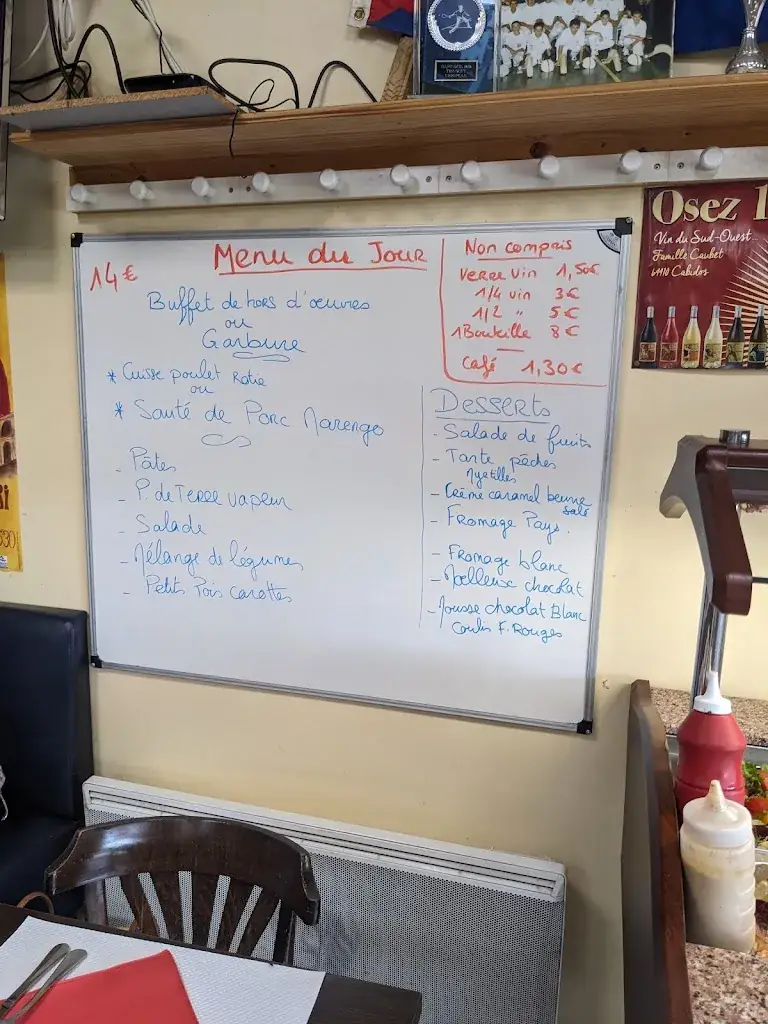 Menu du Jour
14€
Buffet de hors d'œuvres
ou
Garbure
* Cuisse poulet Rotie
ou
* Sauté de Porc Marengo
- Pâtes
- P. de Terre vapeur
- Salade
- Mélange de légumes
- Petits Pois carottes
Non compris
Verre Vin 1,50€
1/4 vin 3€
1/2 " 5€
1 Bouteille 8€
Café 1,30€
Desserts
- Salade de fruits
- Tarte pêches
Myrtilles
- Crème caramel beurre
salé
- Fromage Pays.
- Fromage blanc
- Moelleux chocolat
- Mousse chocolat Blanc
Coulis F. Rouges
Osez 1
Vin du Sud-Ouest...
Famille Caubet
64410 Cabidos